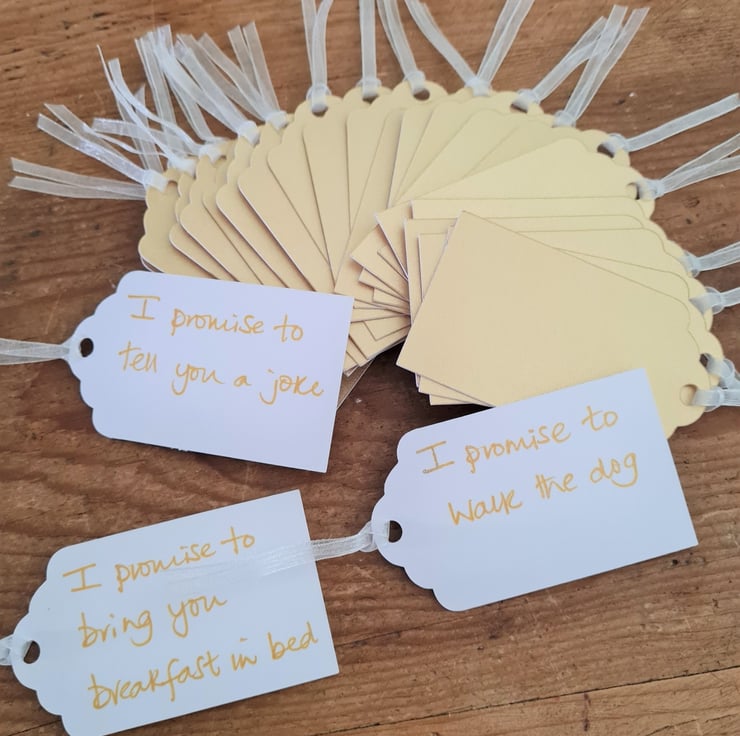 I promise to
tell you a joke
I promise to
walk the dog
I promise to
bring you
breakfast in bed